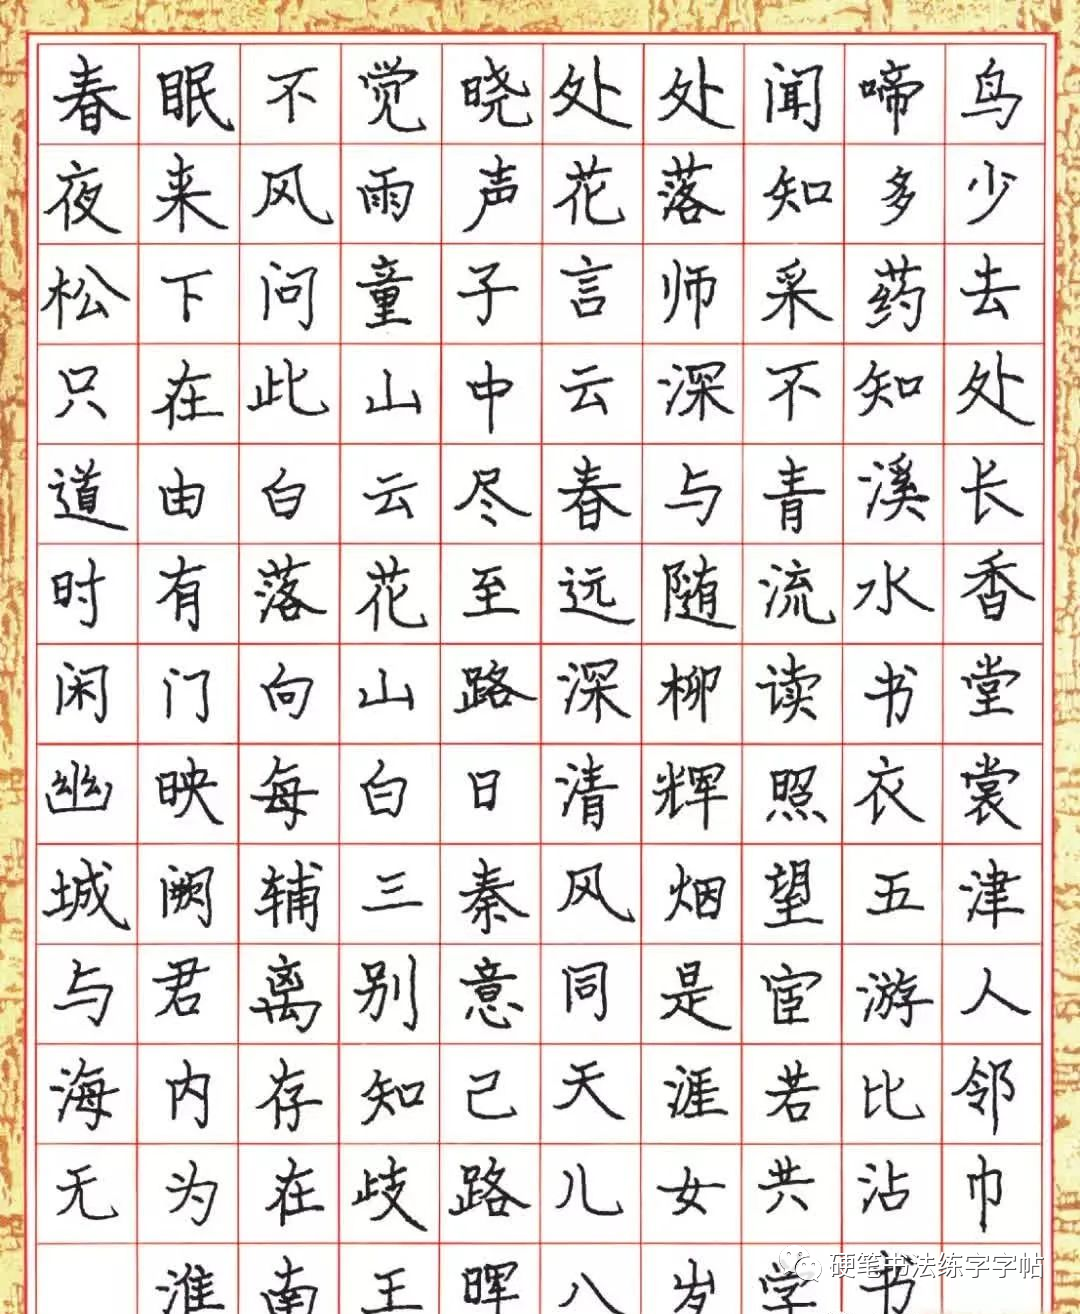 春眠不觉晓处处闻啼鸟
夜来风雨声花落知多少
松下问童子言师采药去
只在此山中云深不知处
道由白云尽春与青溪长
时有落花至远随流水香
闲门向山路深柳读书堂
幽映每白日清辉照衣裳
城阙辅三秦风烟望五津
与君离别意同是宦游人
海内存知己天涯若比邻
无为在歧路儿女共沾巾
淮南王晖八岁学书
硬笔书法练字字帖